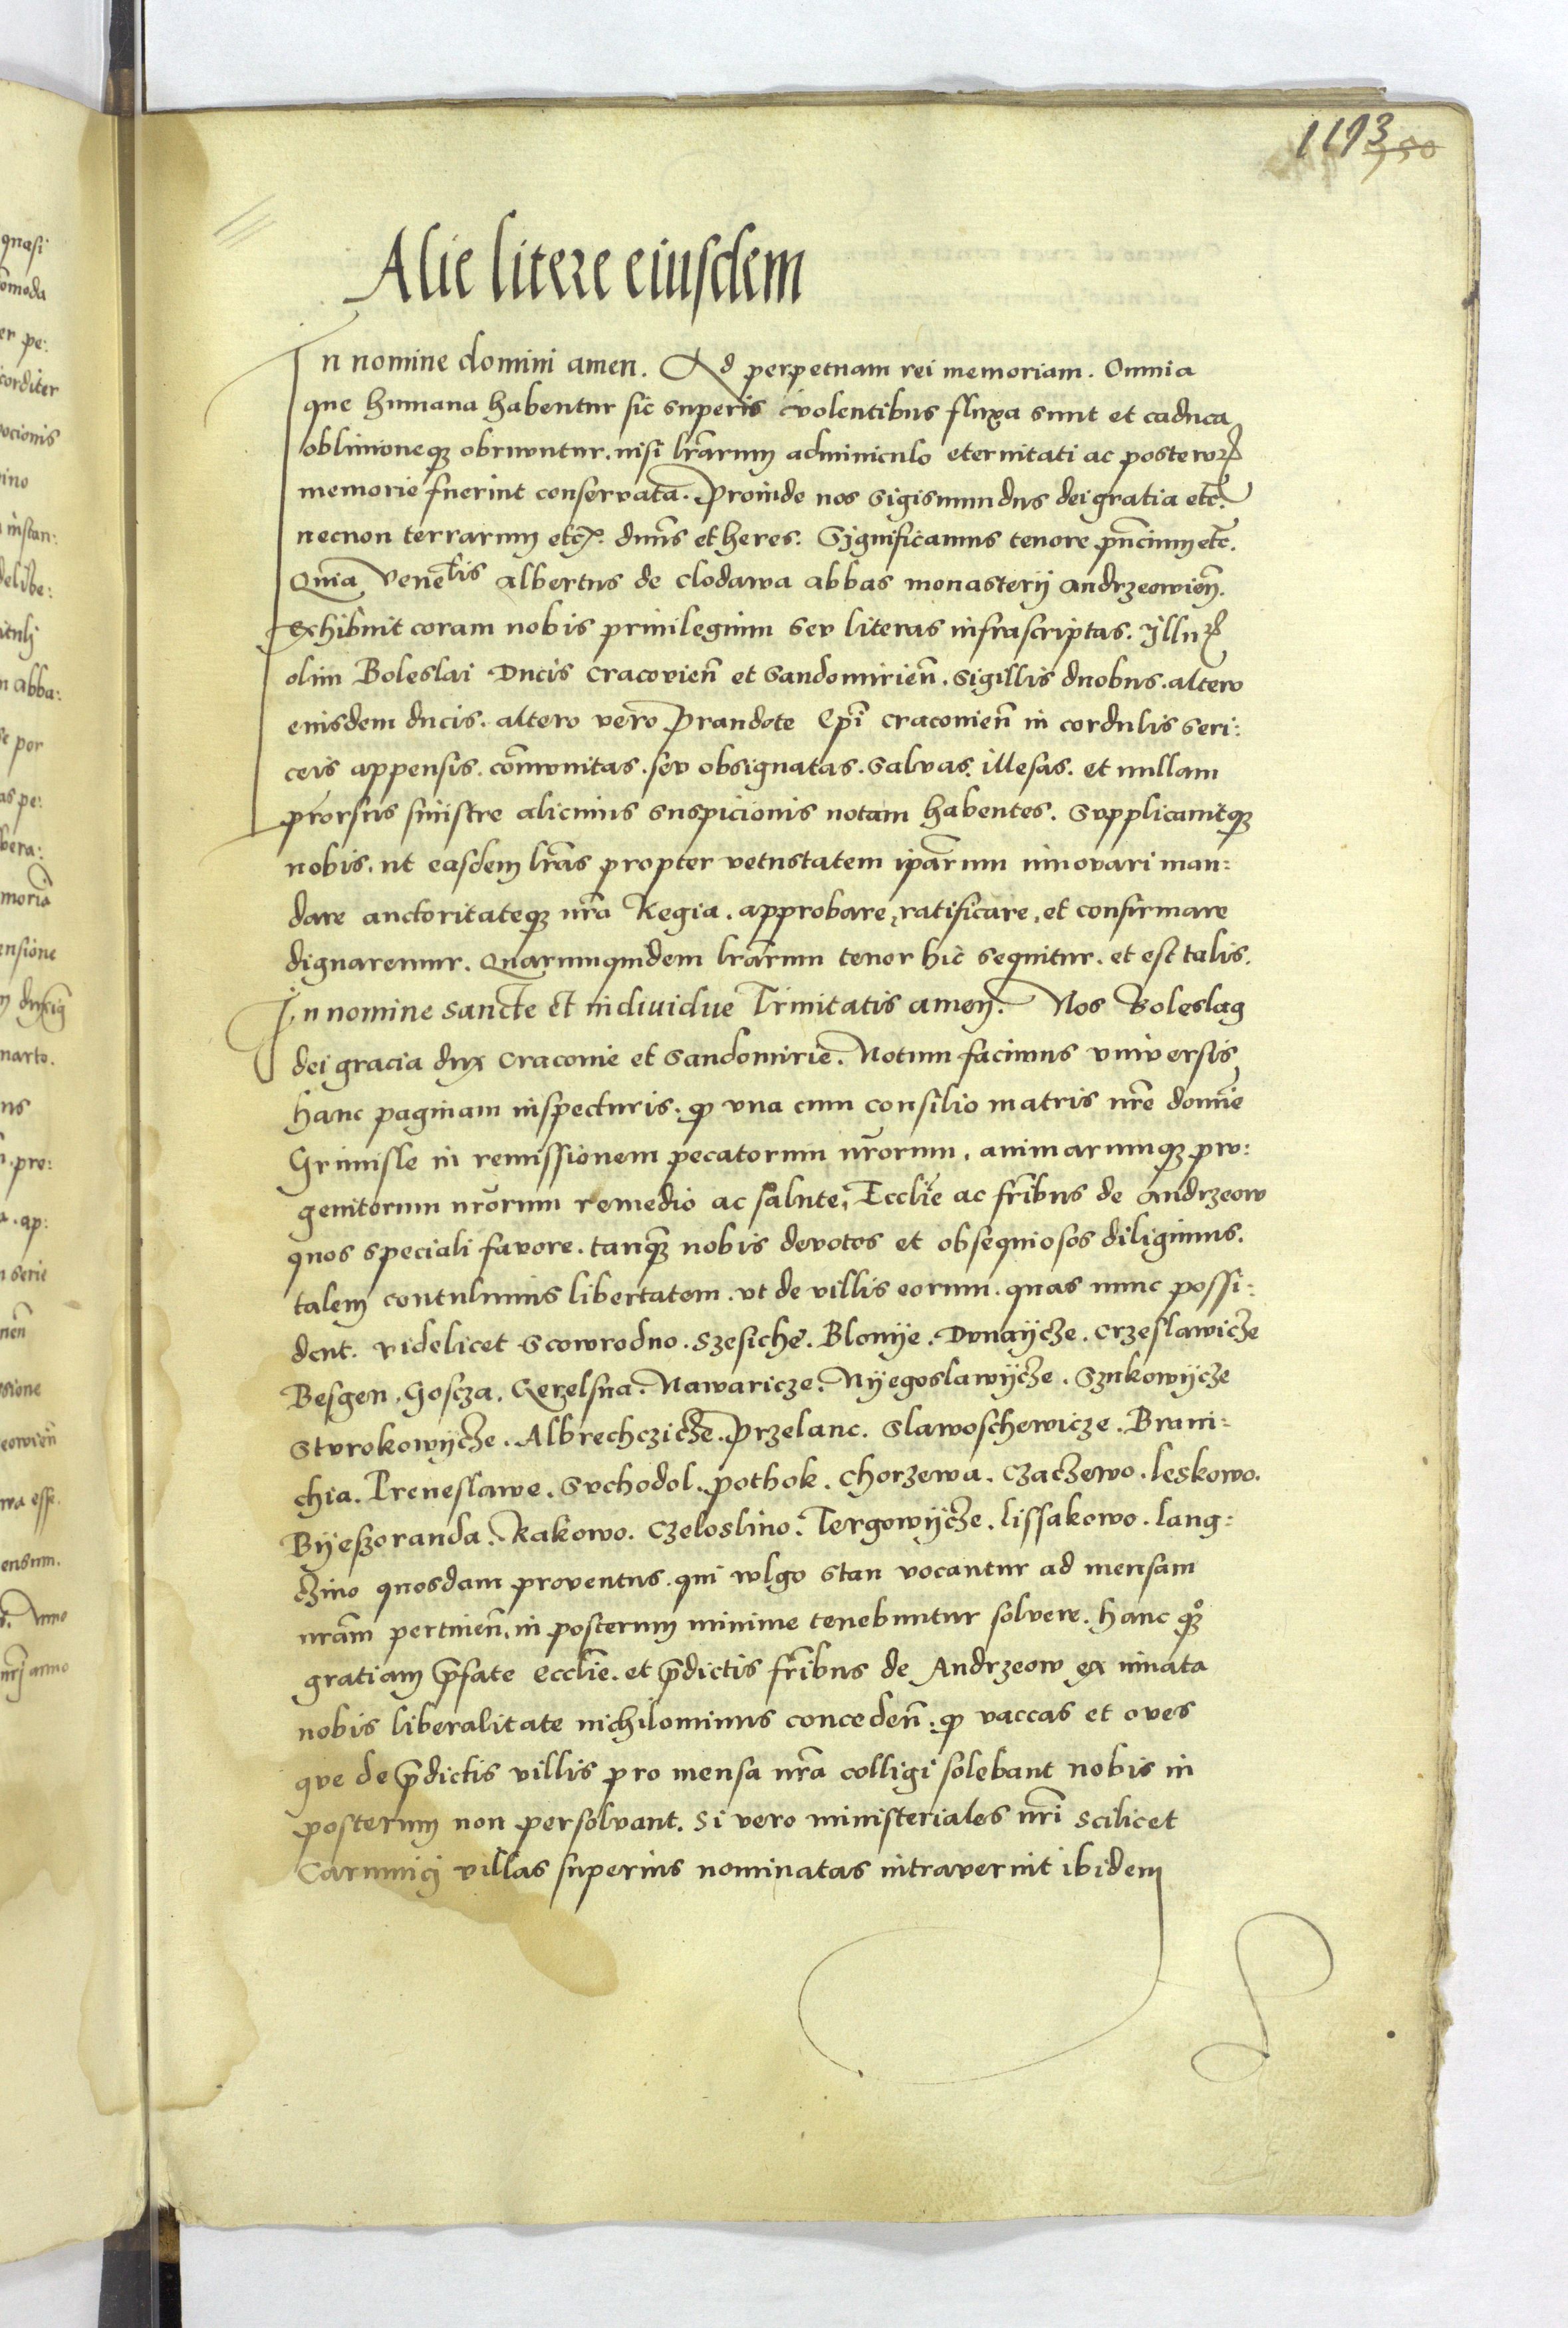 1193 950
Alie litere eiusdem
In nomine domini amen. Ad perpetuam rei memoriam. Omnia
que humana habentur sic superis volentibus fluxa sunt et caduca
oblivioneqꝫ obruuntur. nisi lr̃arum adminiculo eternitati ac posteroꝝ
memorie fuerint conservata. Proinde nos Sigismundus dei gratia etc̃.
necnon terrarum etc̃. dnũs et heres. Significamus tenore pñcium etc̃.
Quia Venelis Albertus de Clodawa abbas monasterij Andrzeowień.
Exhibuit coram nobis privilegium sev literas infrascriptas. Illuꝝ
olim Boleslai Ducis Cracovień et Sandomirień. sigillis duobus. altero
eiusdem ducis. altero vero Prandote Ep̃i Cracovień in cordulis seri:
ceis appensis. com̃unitas. sev obsignatas. Salvas. illesas. et nullam
prorsus sinistre alicuius suspicionis notam habentes. Supplicavitqꝫ
nobis. ut easdem lr̃as propter vetustatem ipãrum innovari man:
dare auctoritateqꝫ nr̃a Regia. approbare, ratificare, et confirmare
dignaremur. Quarumquidem lr̃arum tenor hic sequitur. et est talis.
In nomine sancte et individue Trinitatis amen. Nos Boleslaꝯ
dei gracia dux Cracovie et Sandomirie. Notum facimus universis
hanc paginam inspecturis. ꝙ una cum consilio matris nr̃e domĩe
Grimisle in remissionem pecatorum nr̃orum. animarumqꝫ pro:
genitorum nr̃orum remedio ac salute, Ecclĩe ac fr̃ibus de Andrzeow
quos speciali favore. tanqꝫ nobis devotos et obsequiosos diligimus.
talem contulimus libertatem. ut de villis eorum. quas nunc possi:
dent. videlicet Scowrodno. Szesiche. Blonije. Dunaijcze. Crzeslawicze
Besgen. Goscza. Gerzelsna. Nawaricze. Nijegoslawijcze. Szukowijcze
Sturokowijcze. Albrechczicze. Przelanc. Slawoschewicze. Brani:
chia. Preneslawe. Suchodol. Pothok. Chorzewa. Czaczewo. leskowo.
Bijeszoranda. Rakowo. Czeloslino. Tergowijcze. lissakowo. lang:
czino quosdam proventus. qui wlgo stan vocantur ad mensam
nr̃am pertinen̄. in posterum minime tenebuntur solvere. hanc qꝫ
gratiam p̃fate ecclĩe. et p̃dictis fr̃ibus de Andrzeow ex innata
nobis liberalitate nichilominus conceden̄. ꝙ vaccas et oves
que de p̃dictis villis pro mensa nr̃a colligi solebant nobis in
posterum non persolvant. Si vero ministeriales nr̃i scilicet
Carnnici villas superius nominatas intraverint ibidem